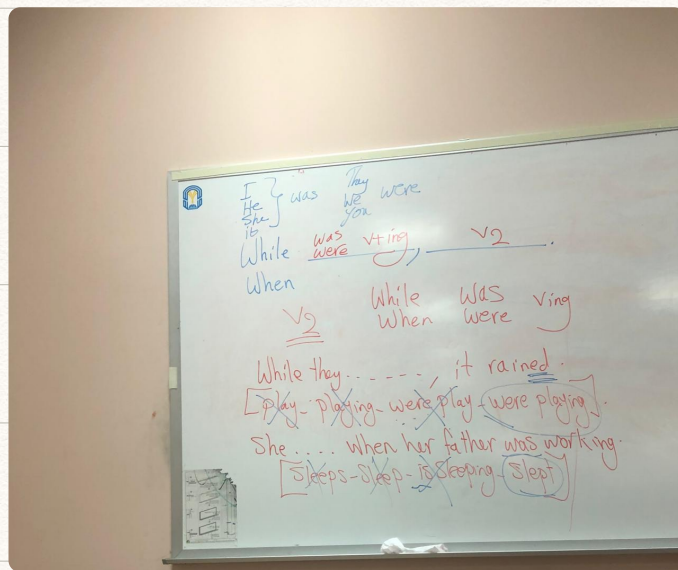 I
He
She
it
} was
They
We
you
were
While was were v+ing, V2.
When
V2 While When was were Ving
While they ......, it rained.
[play - playing - were play - were playing].
She .... when her father was working.
[Sleeps - Sleep - is Sleeping - Slept]